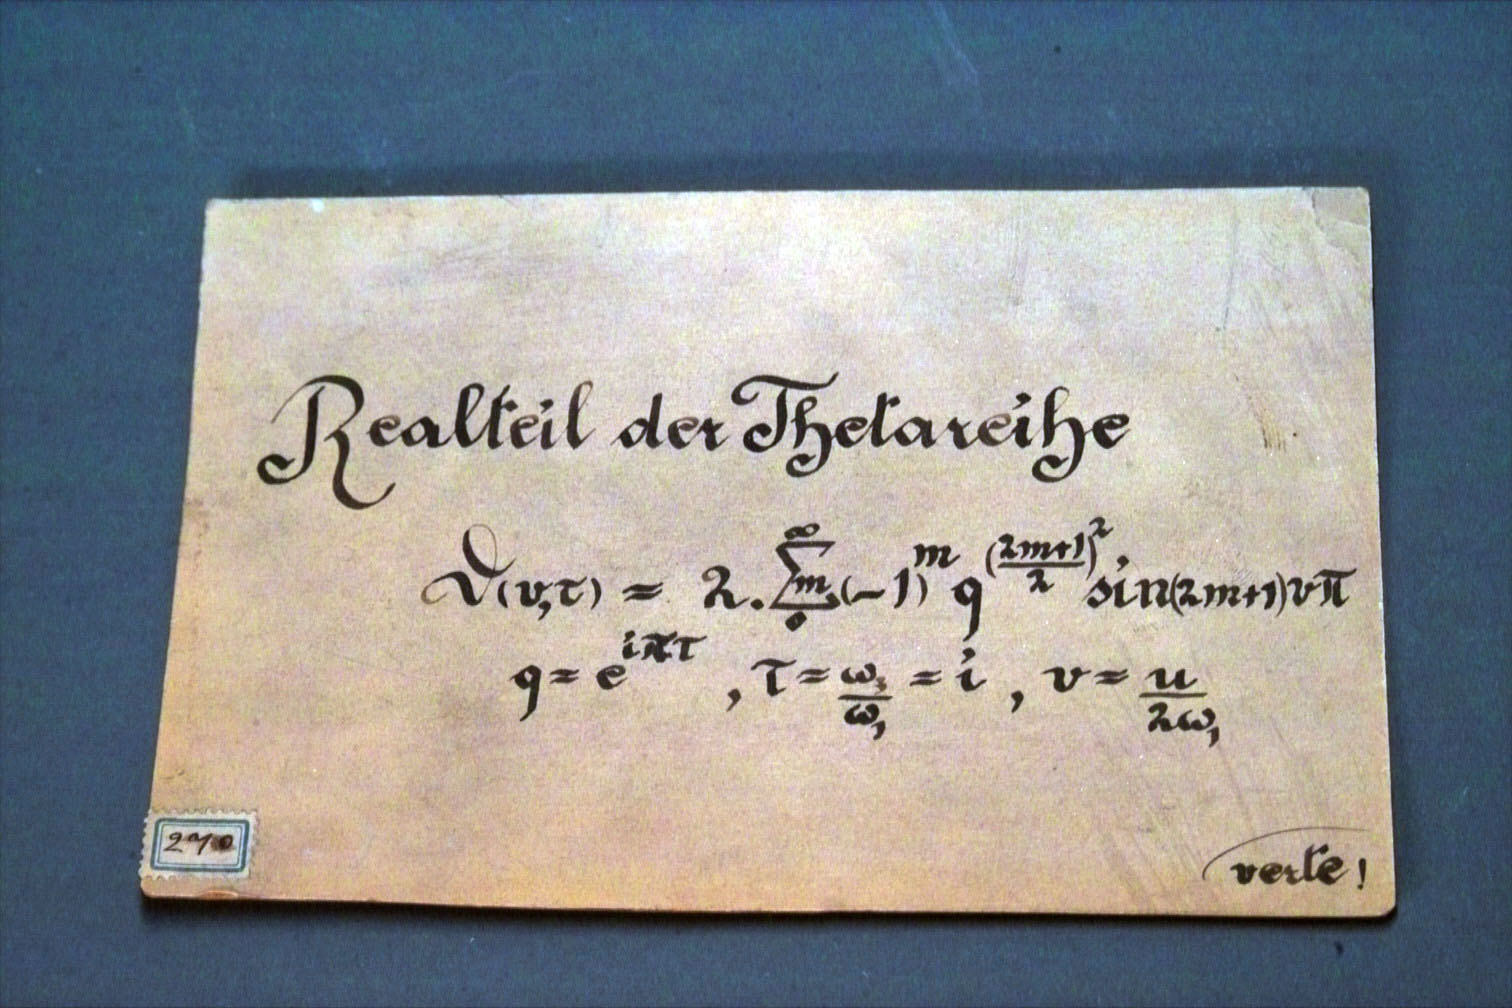 Realteil der Thetareihe
ϑ(v,τ) = 2. ∞∑0 m (-1)^m q^((2m+1)/2)^2 sin(2m+1)vπ
q = e^iπτ , τ = ω3/ω1 = i , v = u/2ω1
verte!